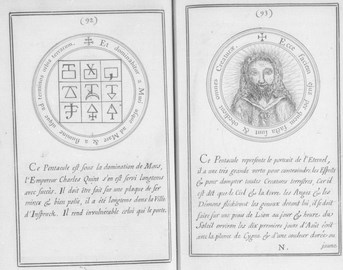 (92)
Et dominabitur a Mari usque ad Mare & a flumine usque ad terminos orbis terrarum.
Ce Pentacule est sous la domination de Mars,
l'Empereur Charles Quint s'en est servi longtems
avec succès. Il doit être fait sur une plaque de fer
mince & bien polie, il a été longtems dans la Ville
d'Inspruck. Il rend invulnérable celui qui le porte.
(93)
Ecce facies ejus per quem facta sunt & obediunt omnes Creaturæ
Ce Pentacule represente le portrait de l'Eternel,
il a une très grande vertu pour contraindre les Esprits
& pour dompter toutes Creatures terrestres, car il
est dit que le Ciel & la terre, les Anges & les
Démons flechiront les genoux devant lui, il se doit
faire sur une peau de Lion au jour & heure du
Soleil environ les dix premiers jours d'Août écrit
avec la plume de Cygne & d'une couleur dorée ou
N. jaune.